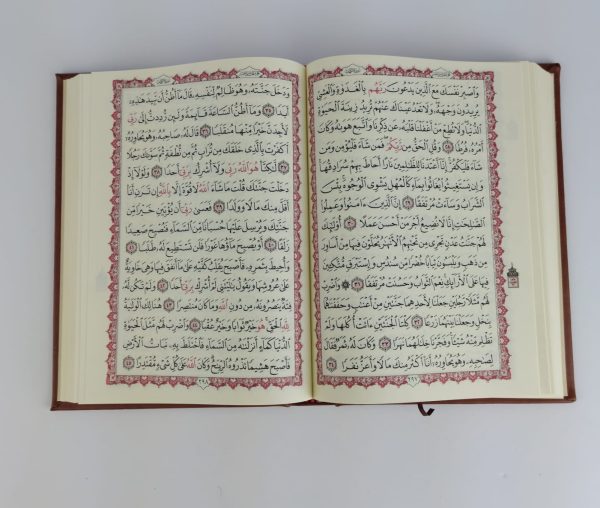 وَٱصْبِرْ نَفْسَكَ مَعَ ٱلَّذِينَ يَدْعُونَ رَبَّهُم بِٱلْغَدَوٰةِ وَٱلْعَشِىِّ
يُرِيدُونَ وَجْهَهُۥ ۖ وَلَا تَعْدُ عَيْنَاكَ عَنْهُمْ تُرِيدُ زِينَةَ ٱلْحَيَوٰةِ
ٱلدُّنْيَا ۖ وَلَا تُطِعْ مَنْ أَغْفَلْنَا قَلْبَهُۥ عَن ذِكْرِنَا وَٱتَّبَعَ هَوَىٰهُ وَكَانَ
أَمْرُهُۥ فُرُطًا ٢٨ وَقُلِ ٱلْحَقُّ مِن رَّبِّكُمْ ۖ فَمَن شَآءَ فَلْيُؤْمِن وَمَن
شَآءَ فَلْيَكْفُرْ ۚ إِنَّآ أَعْتَدْنَا لِلظَّٰلِمِينَ نَارًا أَحَاطَ بِهِمْ سُرَادِقُهَا ۚ
وَإِن يَسْتَغِيثُوا۟ يُغَاثُوا۟ بِمَآءٍ كَٱلْمُهْلِ يَشْوِى ٱلْوُجُوهَ ۚ بِئْسَ
ٱلشَّرَابُ وَسَآءَتْ مُرْتَفَقًا ٢٩ إِنَّ ٱلَّذِينَ ءَامَنُوا۟ وَعَمِلُوا۟
ٱلصَّٰلِحَٰتِ إِنَّا لَا نُضِيعُ أَجْرَ مَنْ أَحْسَنَ عَمَلًا ٣٠ أُو۟لَٰٓئِكَ
لَهُمْ جَنَّٰتُ عَدْنٍ تَجْرِى مِن تَحْتِهِمُ ٱلْأَنْهَٰرُ يُحَلَّوْنَ فِيهَا مِنْ أَسَاوِرَ
مِن ذَهَبٍ وَيَلْبَسُونَ ثِيَابًا خُضْرًا مِّن سُندُسٍ وَإِسْتَبْرَقٍ مُّتَّكِـِٔينَ
فِيهَا عَلَى ٱلْأَرَآئِكِ ۚ نِعْمَ ٱلثَّوَابُ وَحَسُنَتْ مُرْتَفَقًا ٣١ ۞ وَٱضْرِبْ
لَهُم مَّثَلًا رَّجُلَيْنِ جَعَلْنَا لِأَحَدِهِمَا جَنَّتَيْنِ مِنْ أَعْنَٰبٍ وَحَفَفْنَٰهُمَا
بِنَخْلٍ وَجَعَلْنَا بَيْنَهُمَا زَرْعًا ٣٢ كِلْتَا ٱلْجَنَّتَيْنِ ءَاتَتْ أُكُلَهَا وَلَمْ
تَظْلِم مِّنْهُ شَيْـًٔا ۚ وَفَجَّرْنَا خِلَٰلَهُمَا نَهَرًا ٣٣ وَكَانَ لَهُۥ ثَمَرٌ فَقَالَ
لِصَٰحِبِهِۦ وَهُوَ يُحَاوِرُهُۥٓ أَنَا۠ أَكْثَرُ مِنكَ مَالًا وَأَعَزُّ نَفَرًا ٣٤
٢٩٧
وَدَخَلَ جَنَّتَهُۥ وَهُوَ ظَالِمٌ لِّنَفْسِهِۦ قَالَ مَآ أَظُنُّ أَن تَبِيدَ هَٰذِهِۦٓ
أَبَدًا ٣٥ وَمَآ أَظُنُّ ٱلسَّاعَةَ قَآئِمَةً وَلَئِن رُّدِدتُّ إِلَىٰ رَبِّى
لَأَجِدَنَّ خَيْرًا مِّنْهَا مُنقَلَبًا ٣٦ قَالَ لَهُۥ صَاحِبُهُۥ وَهُوَ يُحَاوِرُهُۥٓ
أَكَفَرْتَ بِٱلَّذِى خَلَقَكَ مِن تُرَابٍ ثُمَّ مِن نُّطْفَةٍ ثُمَّ سَوَّىٰكَ رَجُلًا
٣٧ لَّٰكِنَّا۠ هُوَ ٱللَّهُ رَبِّى وَلَآ أُشْرِكُ بِرَبِّىٓ أَحَدًا ٣٨ وَلَوْلَآ إِذْ
دَخَلْتَ جَنَّتَكَ قُلْتَ مَا شَآءَ ٱللَّهُ لَا قُوَّةَ إِلَّا بِٱللَّهِ ۚ إِن تَرَنِ أَنَا۠
أَقَلَّ مِنكَ مَالًا وَوَلَدًا ٣٩ فَعَسَىٰ رَبِّىٓ أَن يُؤْتِيَنِ خَيْرًا مِّن
جَنَّتِكَ وَيُرْسِلَ عَلَيْهَا حُسْبَانًا مِّنَ ٱلسَّمَآءِ فَتُصْبِحَ صَعِيدًا
زَلَقًا ٤٠ أَوْ يُصْبِحَ مَآؤُهَا غَوْرًا فَلَن تَسْتَطِيعَ لَهُۥ طَلَبًا ٤١
وَأُحِيطَ بِثَمَرِهِۦ فَأَصْبَحَ يُقَلِّبُ كَفَّيْهِ عَلَىٰ مَآ أَنفَقَ فِيهَا وَهِىَ خَاوِيَةٌ
عَلَىٰ عُرُوشِهَا وَيَقُولُ يَٰلَيْتَنِى لَمْ أُشْرِكْ بِرَبِّىٓ أَحَدًا ٤٢ وَلَمْ تَكُن لَّهُۥ
فِئَةٌ يَنصُرُونَهُۥ مِن دُونِ ٱللَّهِ وَمَا كَانَ مُنتَصِرًا ٤٣ هُنَالِكَ ٱلْوَلَٰيَةُ
لِلَّهِ ٱلْحَقِّ ۚ هُوَ خَيْرٌ ثَوَابًا وَخَيْرٌ عُقْبًا ٤٤ وَٱضْرِبْ لَهُم مَّثَلَ ٱلْحَيَوٰةِ
ٱلدُّنْيَا كَمَآءٍ أَنزَلْنَٰهُ مِنَ ٱلسَّمَآءِ فَٱخْتَلَطَ بِهِۦ نَبَاتُ ٱلْأَرْضِ
فَأَصْبَحَ هَشِيمًا تَذْرُوهُ ٱلرِّيَٰحُ ۗ وَكَانَ ٱللَّهُ عَلَىٰ كُلِّ شَىْءٍ مُّقْتَدِرًا ٤٥
٢٩٨